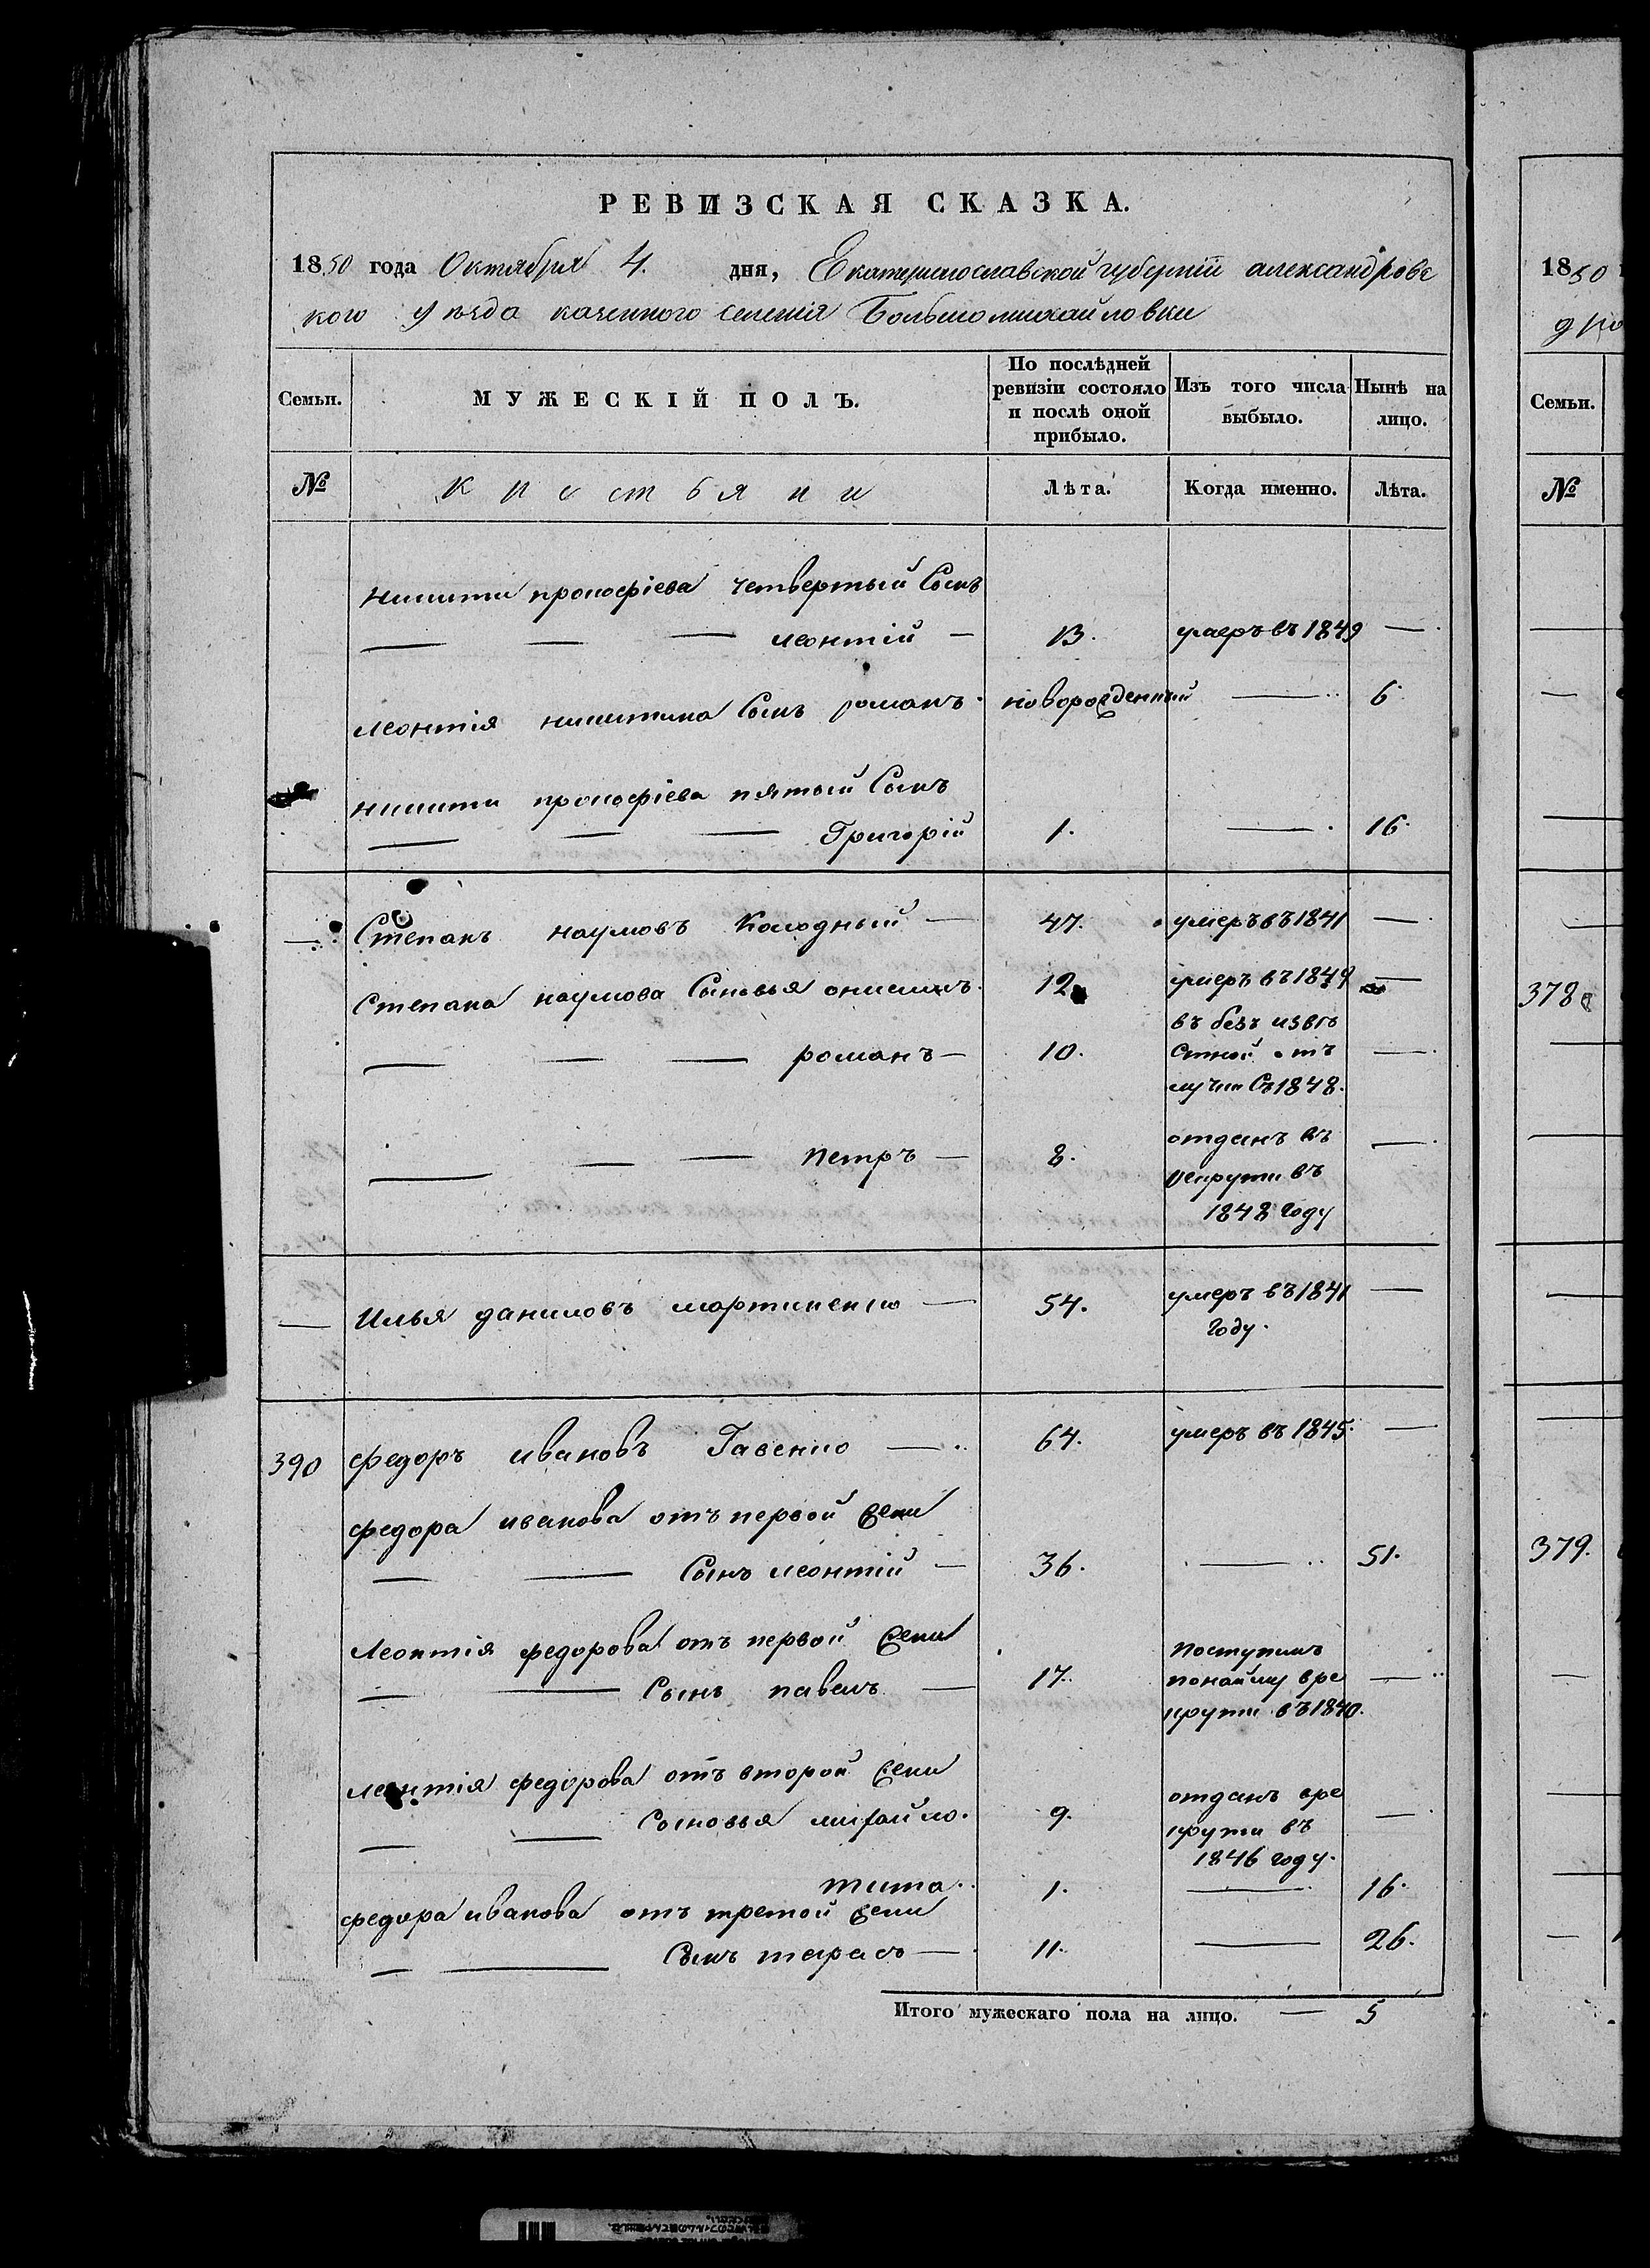 РЕВИЗСКАЯ СКАЗКА.
1850 года Октября 4. дня, Екатеринославской губерніи александровс
кого уезда казенного селенія Большомихайловки
Семьи. МУЖЕСКІЙ ПОЛЪ. По послѣдней ревизіи состояло и послѣ оной прибыло. Изъ того числа выбыло. Нынѣ на лицо.
№ Крестьяни Лѣта. Когда именно. Лѣта.
никиты прокофіева четвертый Сынъ
— — — леонтій — 13. умеръ въ 1849 —
леонтія никитина Сынъ романъ новорожденный — 6
никиты прокофіева пятый Сынъ
— — — Григорій 1. — 16.
— Степанъ наумовъ Колодный — 47. умеръ въ 1841 —
Степана наумова Сыновья онисимъ 12. умеръ въ 1849 —
— — — романъ — 10. въ безъ извѣ
стной от
лучки Съ 1848. —
— — — петръ — 8. отданъ въ
рекруты въ
1848 году —
— Илья даниловъ мартиненко — 54. умеръ въ 1841
году. —
390 федоръ ивановъ Гавенко — 64. умеръ въ 1845. —
федора иванова отъ первой жени
— — Сынъ леонтій — 36. — 51.
Леонтія федорова отъ первой жени
— — Сынъ павелъ — 17. поступилъ
понайму вре
круты въ 1840. —
леонтія федорова отъ второй жени
— — Сыновья михайло. 9. отданъ вре
круты въ
1846 году. —
тита 1. — 16.
федора иванова отъ третой жени
— — Сынъ тарасъ — 11. — 26.
Итого мужескаго пола на лицо. — 5
1850
Семьи.
№
378
379.